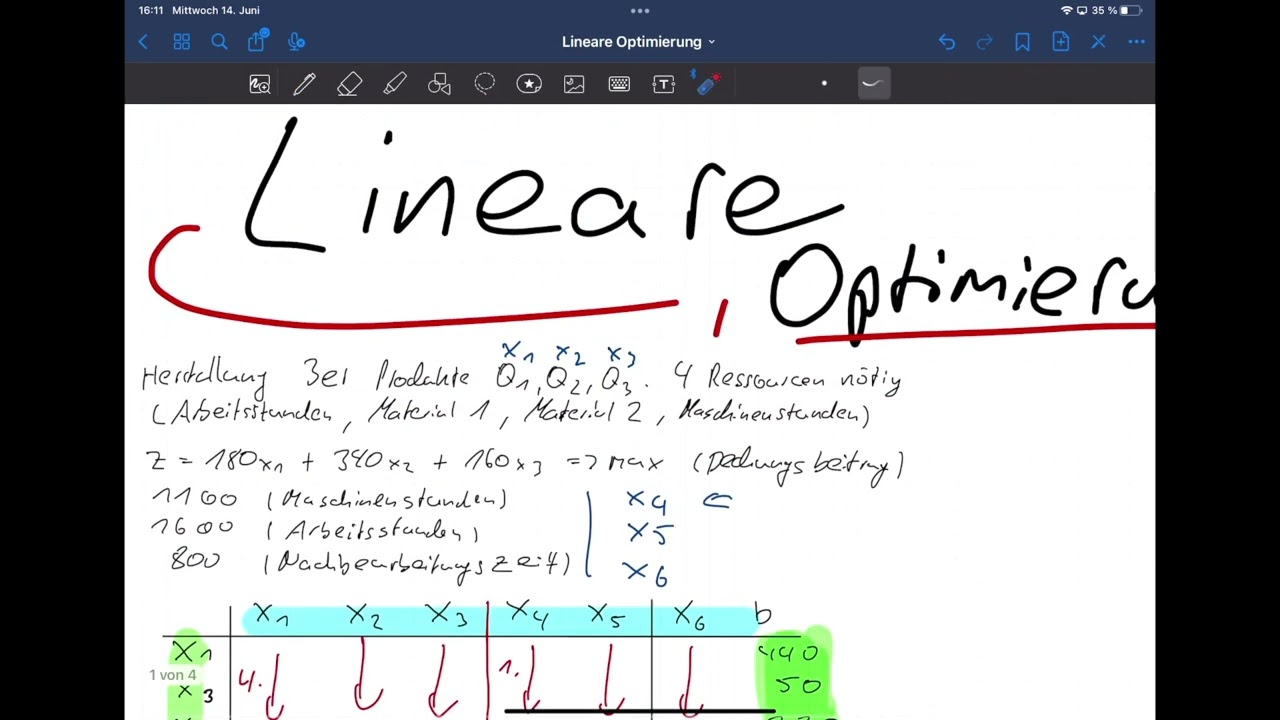 16:11 Mittwoch 14. Juni
35 %
Lineare Optimierung
T
Lineare
Optimieru
x1 x2 x3
Herstellung 3er Produkte Q1, Q2, Q3. 4 Ressourcen nötig
(Arbeitsstunden, Material 1, Material 2, Maschinenstunden)
z = 180x1 + 340x2 + 160x3 => max (Deckungsbeitrag)
1100 (Maschinenstunden) x4
1600 (Arbeitsstunden) x5
800 (Nachbearbeitungszeit) x6
x1 x2 x3 x4 x5 x6 b
x1 4. 1. 440
1 von 4
x3 50